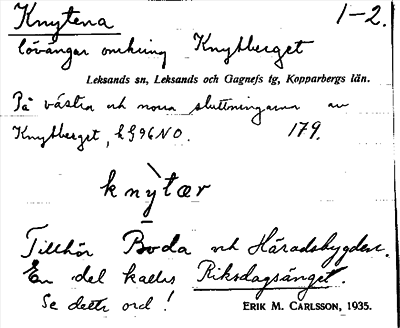 Knytena 1-2.
lövängar omkring Knytberget
Leksands sn, Leksands och Gagnefs tg, Kopparbergs län.
På västra och norra sluttningarna av
Knytberget, 179.
knỳtær
Tillhör Boda och Häradsbygden.
En del kallas Riksdagsänget.
Se detta ord!
ERIK M. CARLSSON, 1935.